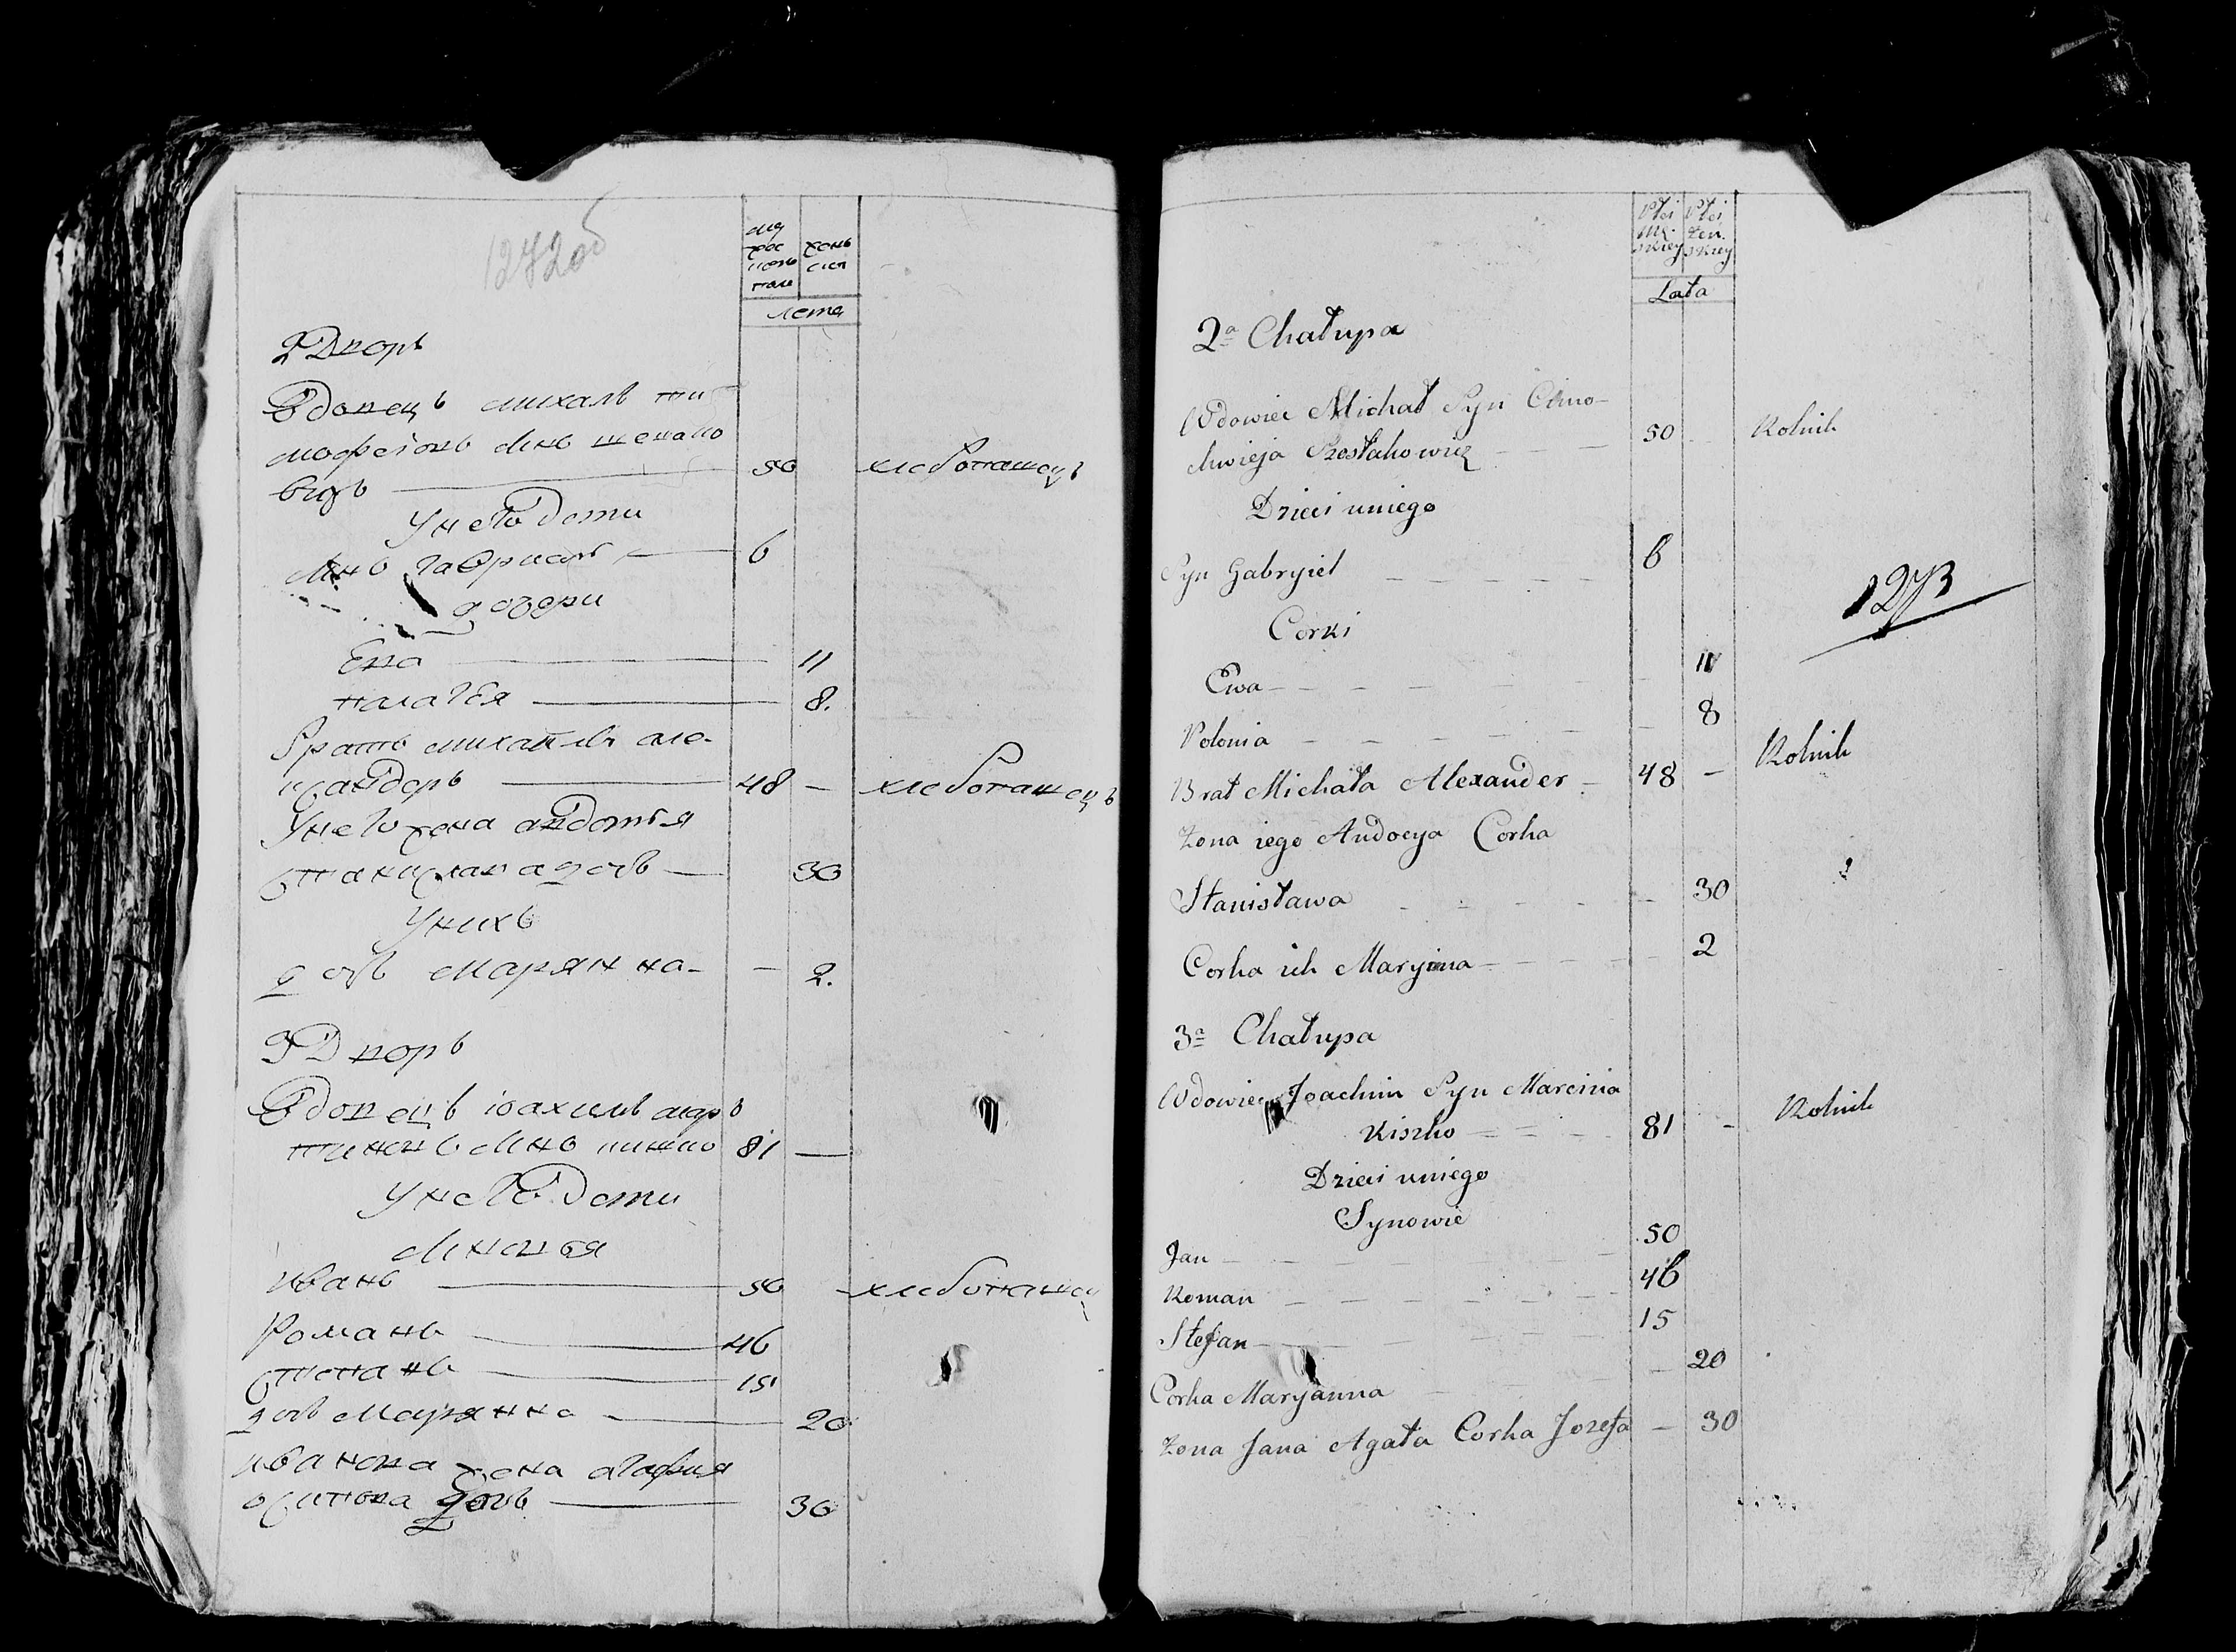 1272об
муж
ска
женъ
ска
лета
2 Дворъ
Вдовецъ михалъ ти
мофеговъ синъ
вичъ 50 хлебопашецъ
У него дети
синъ гавриалъ 6
дочери
Ева 11
палагея 8.
братъ михаиловъ але-
ксандеръ 48 — хлебопашецъ
У него жена авдотья
станиславова дочь — 30
У нихъ
дочь Марянна — 2.
3 Дворъ
Вдовецъ іоахимъ мар
тиновъ синъ кишко 81 —
У него Дети
синовья
иванъ 50 хлебопашец
Романъ 46
степанъ 15
дочь Марянна 20
иванова жена агафия
осипова дочь 30
Płci Płci
Mę- Żeń.
skiey skiey
Lata
2ª Chałupa
Wdowiec Michał Syn Cimo-
chwieja Szostakowicz 50 Rolnik
Dzieci uniego
Syn Gabryiel 6
Corki
1273
Ewa 11
Polonia 8
Brat Michała Alexander 48 — Rolnik
Żona iego Audocya Corka
Stanisława 30
Corka ich Maryjnna 2
3ª Chałupa
Wdowiec Joachim Syn Marcina
Kiszko 81 - Rolnik
Dzieci uniego
Synowie
Jan 50
Roman 46
Stefan 15
Corka Maryanna 20
Żona Jana Agata Corka Jozefa — 30